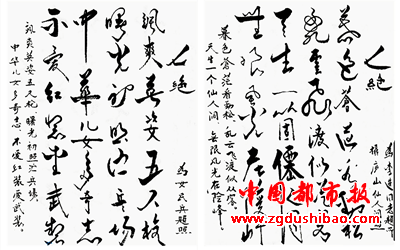 七绝
暮色苍茫看劲松
乱云飞渡仍从容
天生一个僊人洞
无限风光在险峰
暮色苍茫看劲松，乱云飞渡仍从容。
天生一个仙人洞，无限风光在险峰。
七绝
为女民兵题照
飒爽英姿五尺枪
曙光初照演兵场
中华儿女多奇志
不爱红装爱武装
飒爽英姿五尺枪，曙光初照演兵场。
中华儿女多奇志，不爱红装爱武装。
中国都市报
www.zgdushibao.com